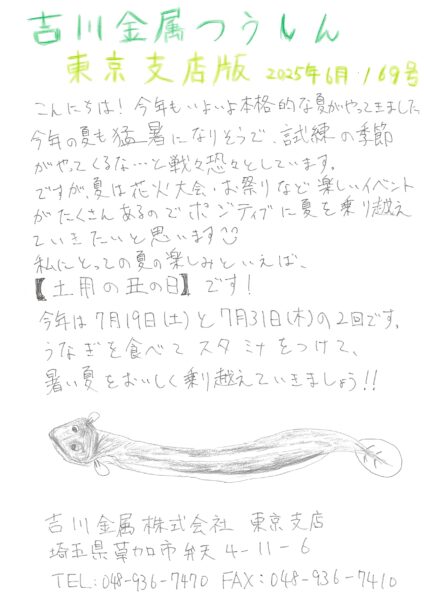 吉川金属つうしん
東京支店版 2025年6月 169号
こんにちは！今年もいよいよ本格的な夏がやってきました
今年の夏も猛暑になりそうで、試練の季節
がやってくるな…と戦々恐々としています。
ですが、夏は花火大会・お祭りなど楽しいイベント
がたくさんあるのでポジティブに夏を乗り越え
ていきたいと思います☺
私にとっての夏の楽しみといえば、
【土用の丑の日】です！
今年は7月19日(土)と7月31日(木)の2回です。
うなぎを食べてスタミナをつけて、
暑い夏をおいしく乗り越えていきましょう！！
吉川金属株式会社 東京支店
埼玉県草加市弁天4-11-6
TEL:048-936-7470 FAX:048-936-7410